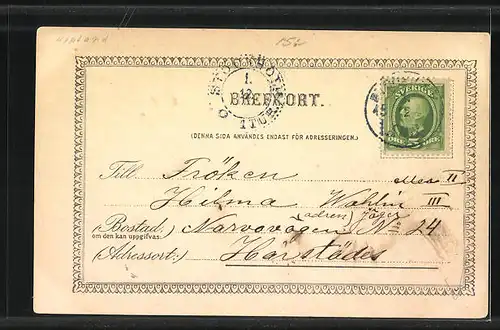 152
STOCKHOLM
1.
12.
1 TUR
BREFKORT.
SVERIGE
ÖRE ÖRE
(DENNA SIDA ANVÄNDES ENDAST FÖR ADRESSERINGEN.)
Till Fröken
Hilma Wahlin III
(Bostad. Narvavägen N. 24
om den kan uppgifvas.
(Adressort:) Härstädes